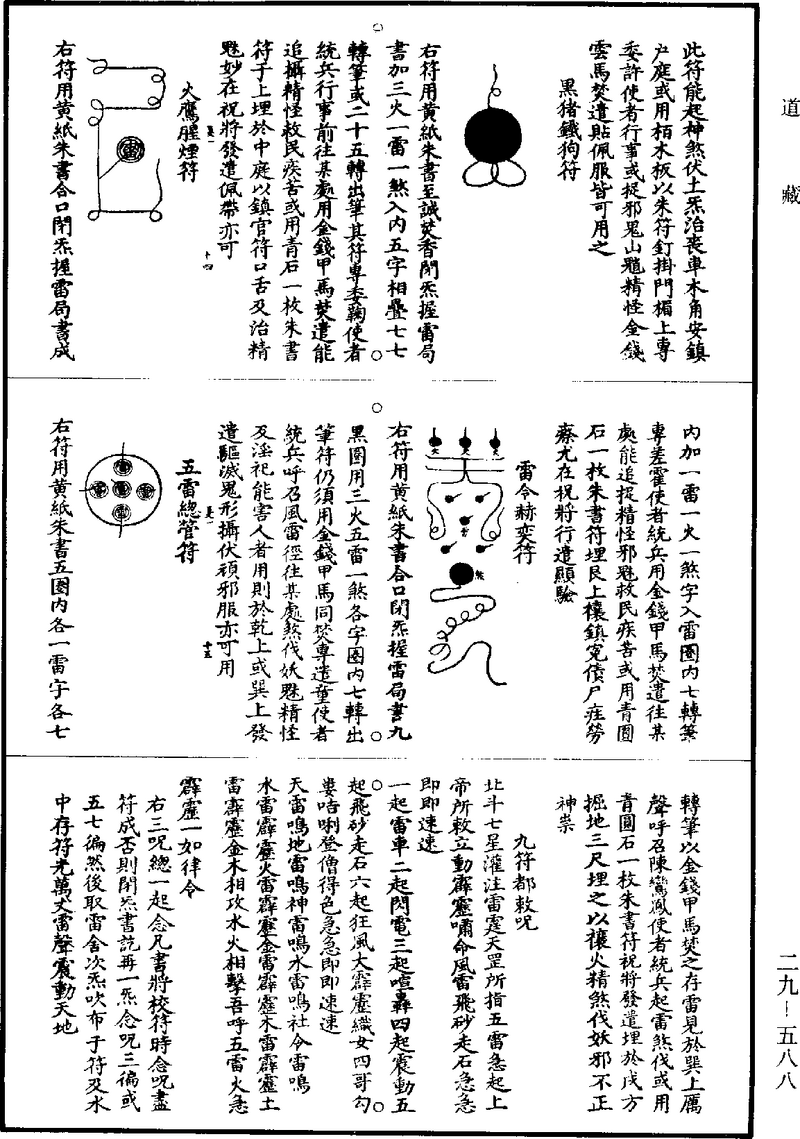 道藏
此符能起神煞伏土炁治喪車木角安鎮
戶庭或用栢木板以朱符釘掛門楣上專
委許使者行事或捉邪鬼山魈精怪金錢
雲馬焚遣貼佩服皆可用之
黑猪鐵狗符
右符用黃紙朱書至誠焚香閉炁握雷局
書加三火一雷一煞入內五字相疊七七
轉筆或二十五轉出筆其符專委鞠使者
統兵行事前往某處用金錢甲馬焚遣能
追攝精怪救民疾苦或用青石一枚朱書
符于上埋於中庭以鎮官符口舌及治精
魅妙在祝將發遣佩帶亦可
十四
火鷹腥煙符
右符用黃紙朱書合口閉炁握雷局書成
內加一雷一火一煞字入雷圈內七轉筆
專差霍使者統兵用金錢甲馬焚遣往某
處能追捉精怪邪魅救民疾苦或用青圓
石一枚朱書符埋艮上禳鎮冤債尸疰勞
瘵尤在祝將行遣顯驗
雷令赫奕符
火
火
火
雷
煞
右符用黃紙朱書合口閉炁握雷局書九
黑圈用三火五雷一煞各字圈內七轉出
筆符仍須用金錢甲馬同焚專遣董使者
統兵呼召風雷徑往某處煞伐妖魅精怪
及淫祀能害人者用則於乾上或巽上發
遣驅滅鬼形攝伏頑邪服亦可用
十五
五雷總管符
雷
雷
雷
雷
雷
右符用黃紙朱書五圈內各一雷字各七
轉筆以金錢甲馬焚之存雷見於巽上厲
聲呼召陳鸞鳳使者統兵起雷煞伐或用
青圓石一枚朱書符祝將發遣埋於戌方
掘地三尺埋之以禳火精煞伐妖邪不正
神祟
九符都敕呪
北斗七星灌注雷霆天罡所指五雷急起上
帝所敕立動霹靂嘯命風雷飛砂走石急急
即即速速
一起雷車二起閃電三起喧轟四起震動五
起飛砂走石六起狂風大霹靂織女四哥勾
婁咭唎登僧得色急急即即速速
天雷鳴地雷鳴神雷鳴水雷鳴社令雷鳴
水雷霹靂火雷霹靂金雷霹靂木雷霹靂土
雷霹靂金木相攻水火相擊吾呼五雷火急
霹靂一如律令
右三呪總一起念凡書將校符時念呪盡
符成否則閉炁書訖再一炁念呪三徧或
五七徧然後取雷舍次炁吹布于符及水
中存符光萬丈雷聲震動天地
二九—五八八